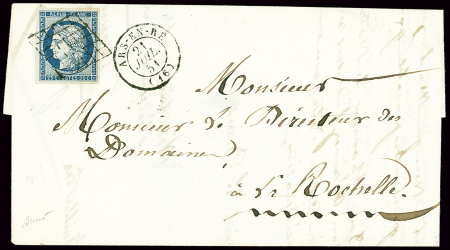 REPUB. FRANC.
25 25
ARS-EN-RÉ
21
JUIL.
51
(16)
Monsieur
Monsieur le Directeur des
Domaines
à La Rochelle.